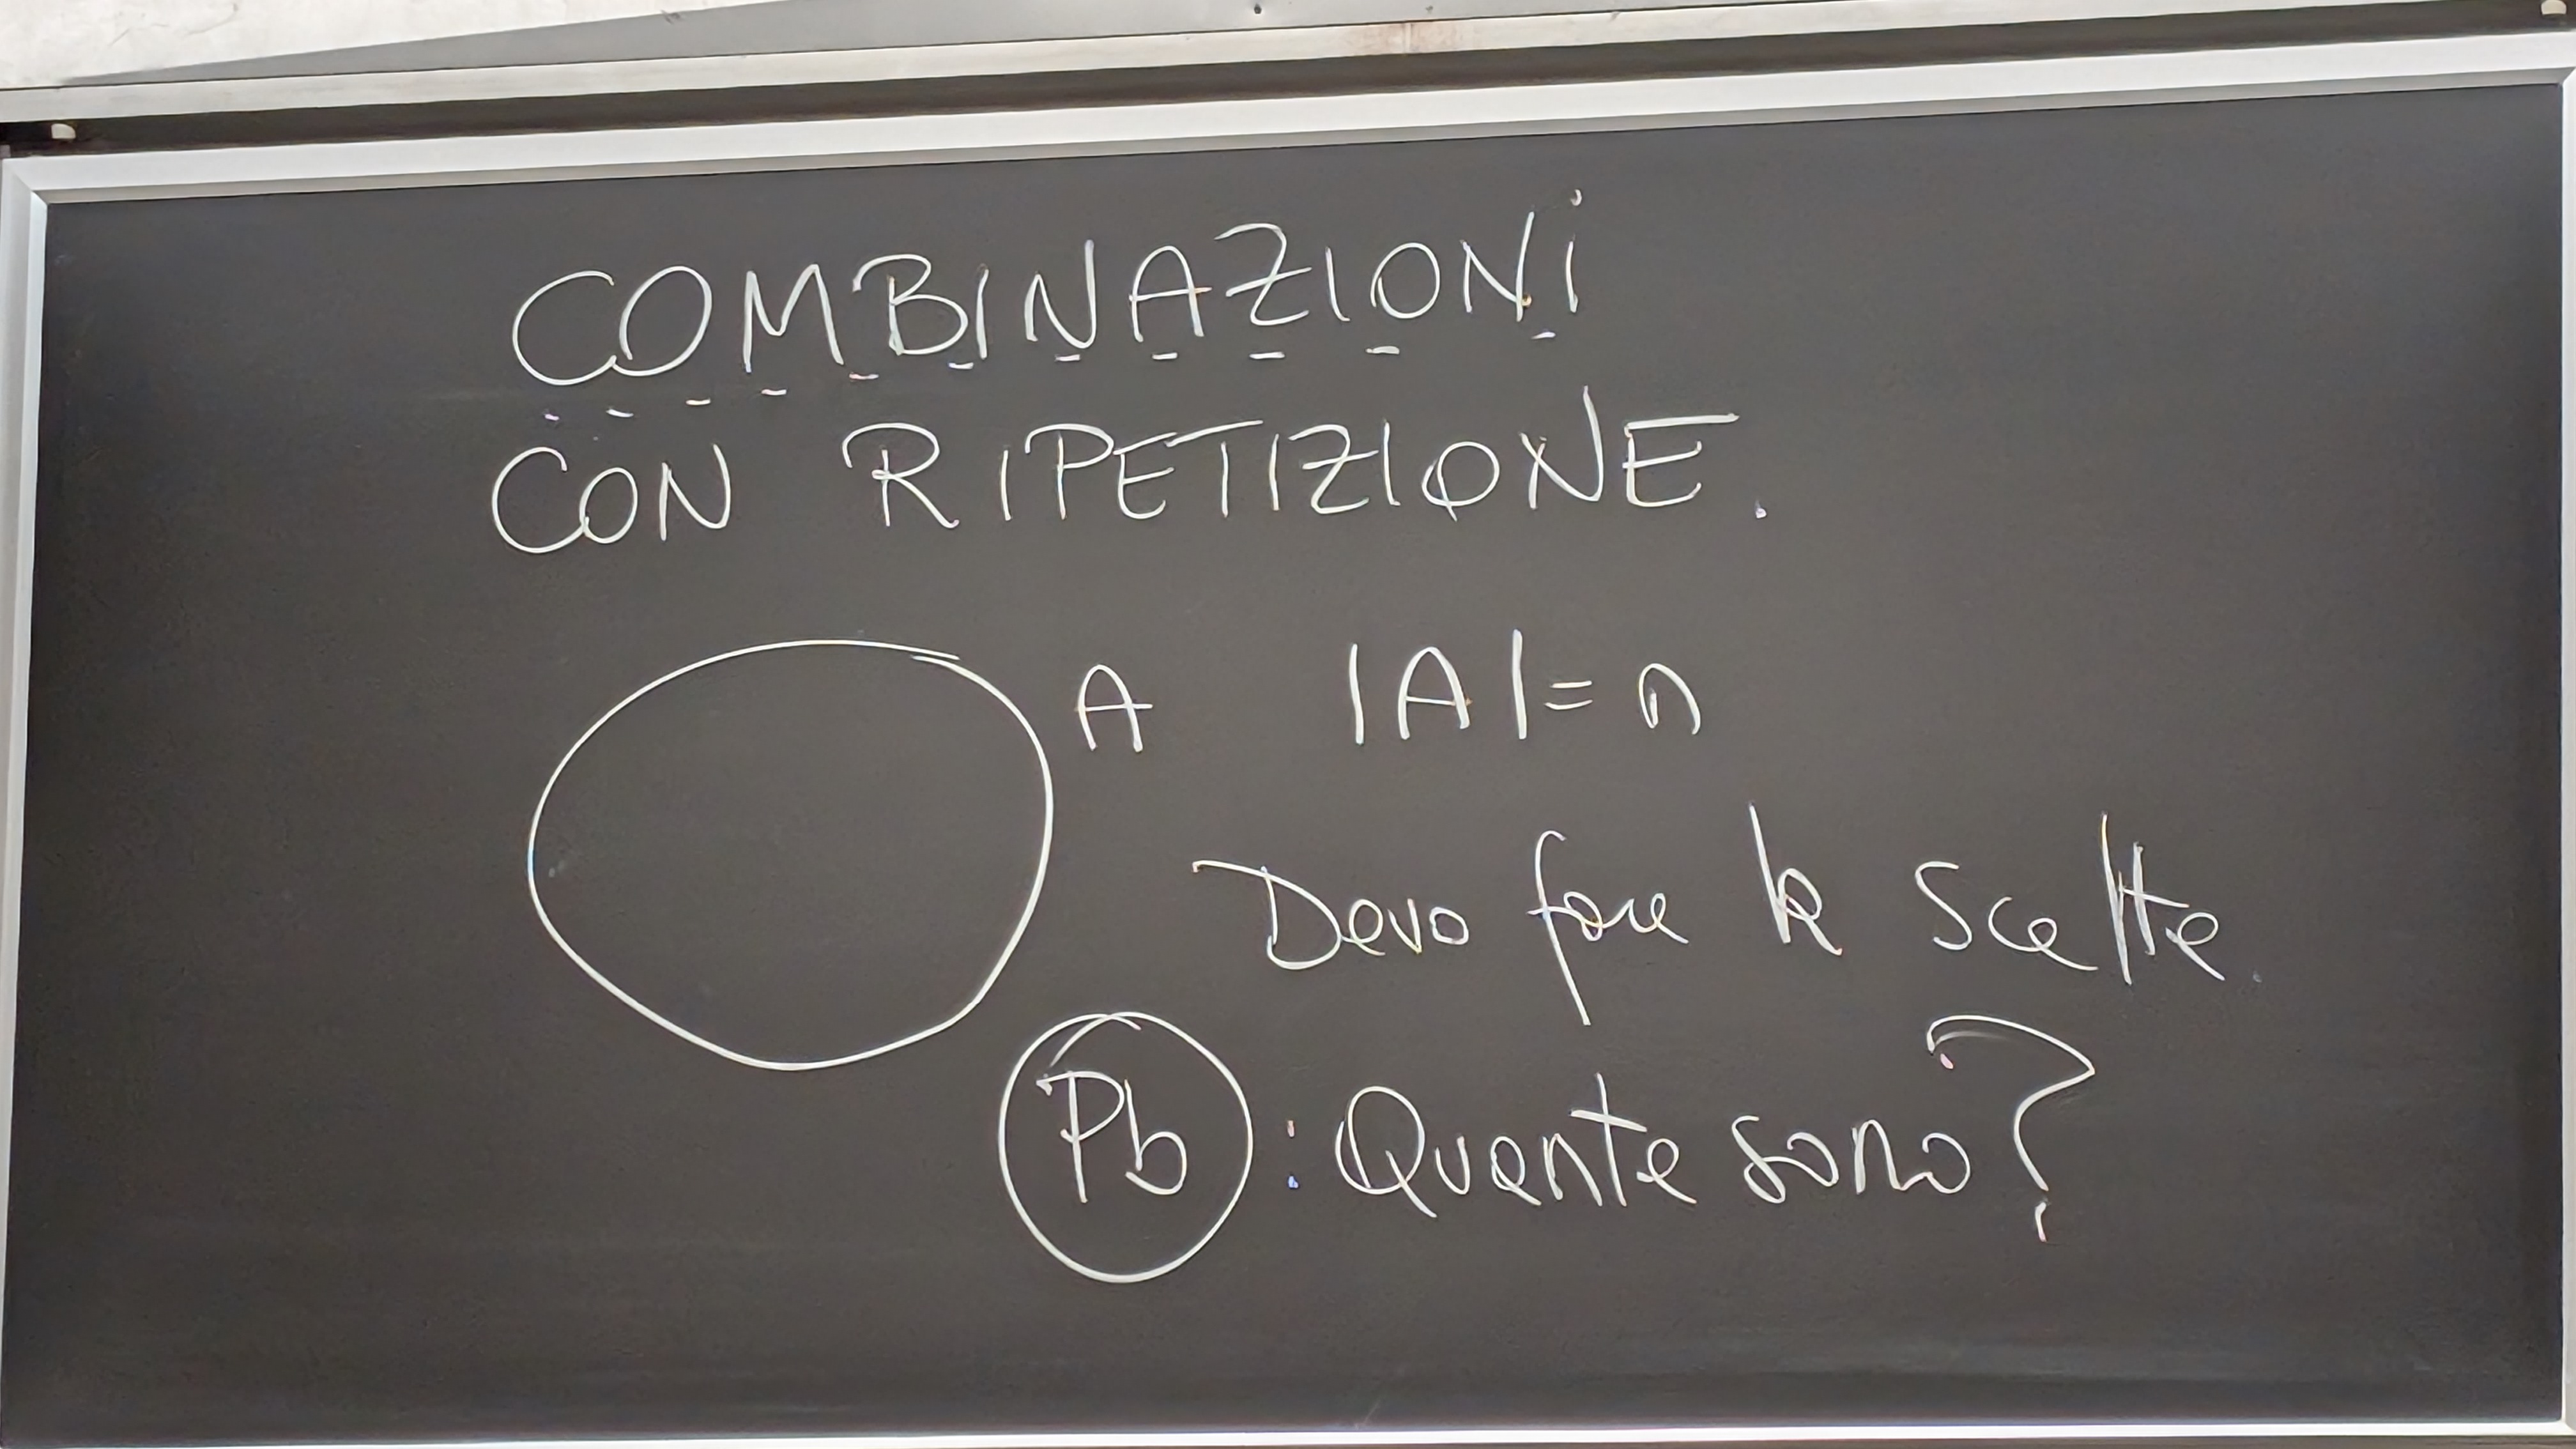 COMBINAZIONi
CON RIPETIZIONE.
A |A| = n
Devo fare k scelte.
Pb : Quante sono?